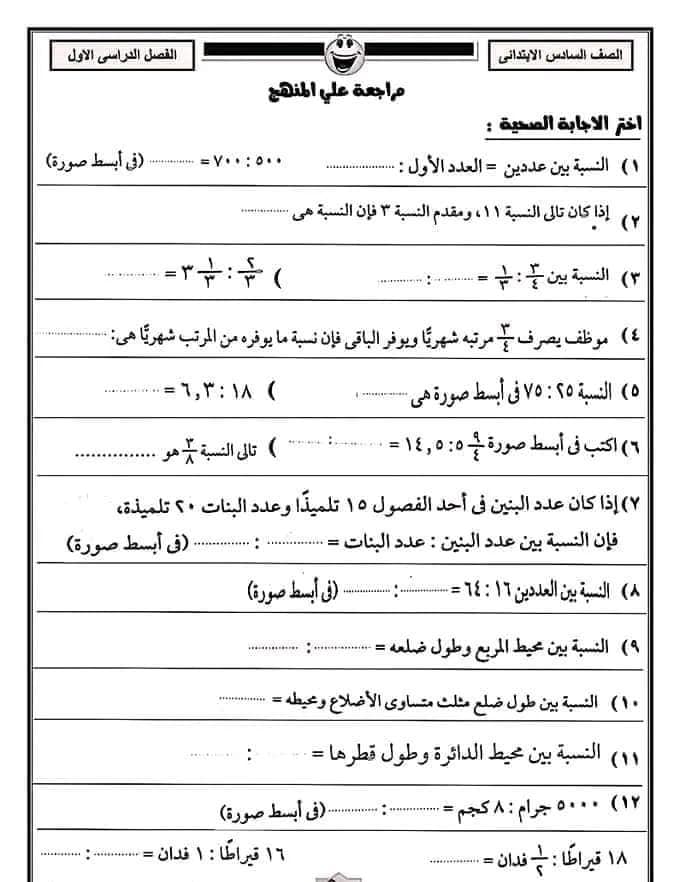 الصف السادس الابتدائى
الفصل الدراسى الاول
مراجعة علي المنهج
اختر الاجابة الصحية :
١) النسبة بين عددين = العدد الأول : .................... ٥٠٠ : ٧٠٠ = ............. (فى أبسط صورة)
٢) إذا كان تالى النسبة ١١، ومقدم النسبة ٣ فإن النسبة هى .............
٣) النسبة بين ٣/٤ : ١/٣ = ............ : ............ ) ٢/٣ : ١/٣ ٣ = ............
٤) موظف يصرف ٣/٤ مرتبه شهريًّا ويوفر الباقى فإن نسبة ما يوفره من المرتب شهريًّا هى: ....................
٥) النسبة ٢٥ : ٧٥ فى أبسط صورة هى ............ ) ١٨ : ٦,٣ = ............
٦) اكتب فى أبسط صورة ٩/٤ ٥ : ١٤,٥ = ............ : ............ ) تالى النسبة ٣/٨ هو ...............
٧) إذا كان عدد البنين فى أحد الفصول ١٥ تلميذًا وعدد البنات ٢٠ تلميذة،
فإن النسبة بين عدد البنين : عدد البنات = ............... : ............... (فى أبسط صورة)
٨) النسبة بين العددين ١٦ : ٦٤ = ............ : ............ (فى أبسط صورة)
٩) النسبة بين محيط المربع وطول ضلعه = ............... : ............
١٠) النسبة بين طول ضلع مثلث متساوى الأضلاع ومحيطه = ............
١١) النسبة بين محيط الدائرة وطول قطرها = ............ : ............
١٢) ٥٠٠٠ جرام : ٨ كجم = ............ : ............ (فى أبسط صورة)
١٨ قيراطًا : ١/٢ فدان = ............... ١٦ قيراطًا : ١ فدان = ............ : ............